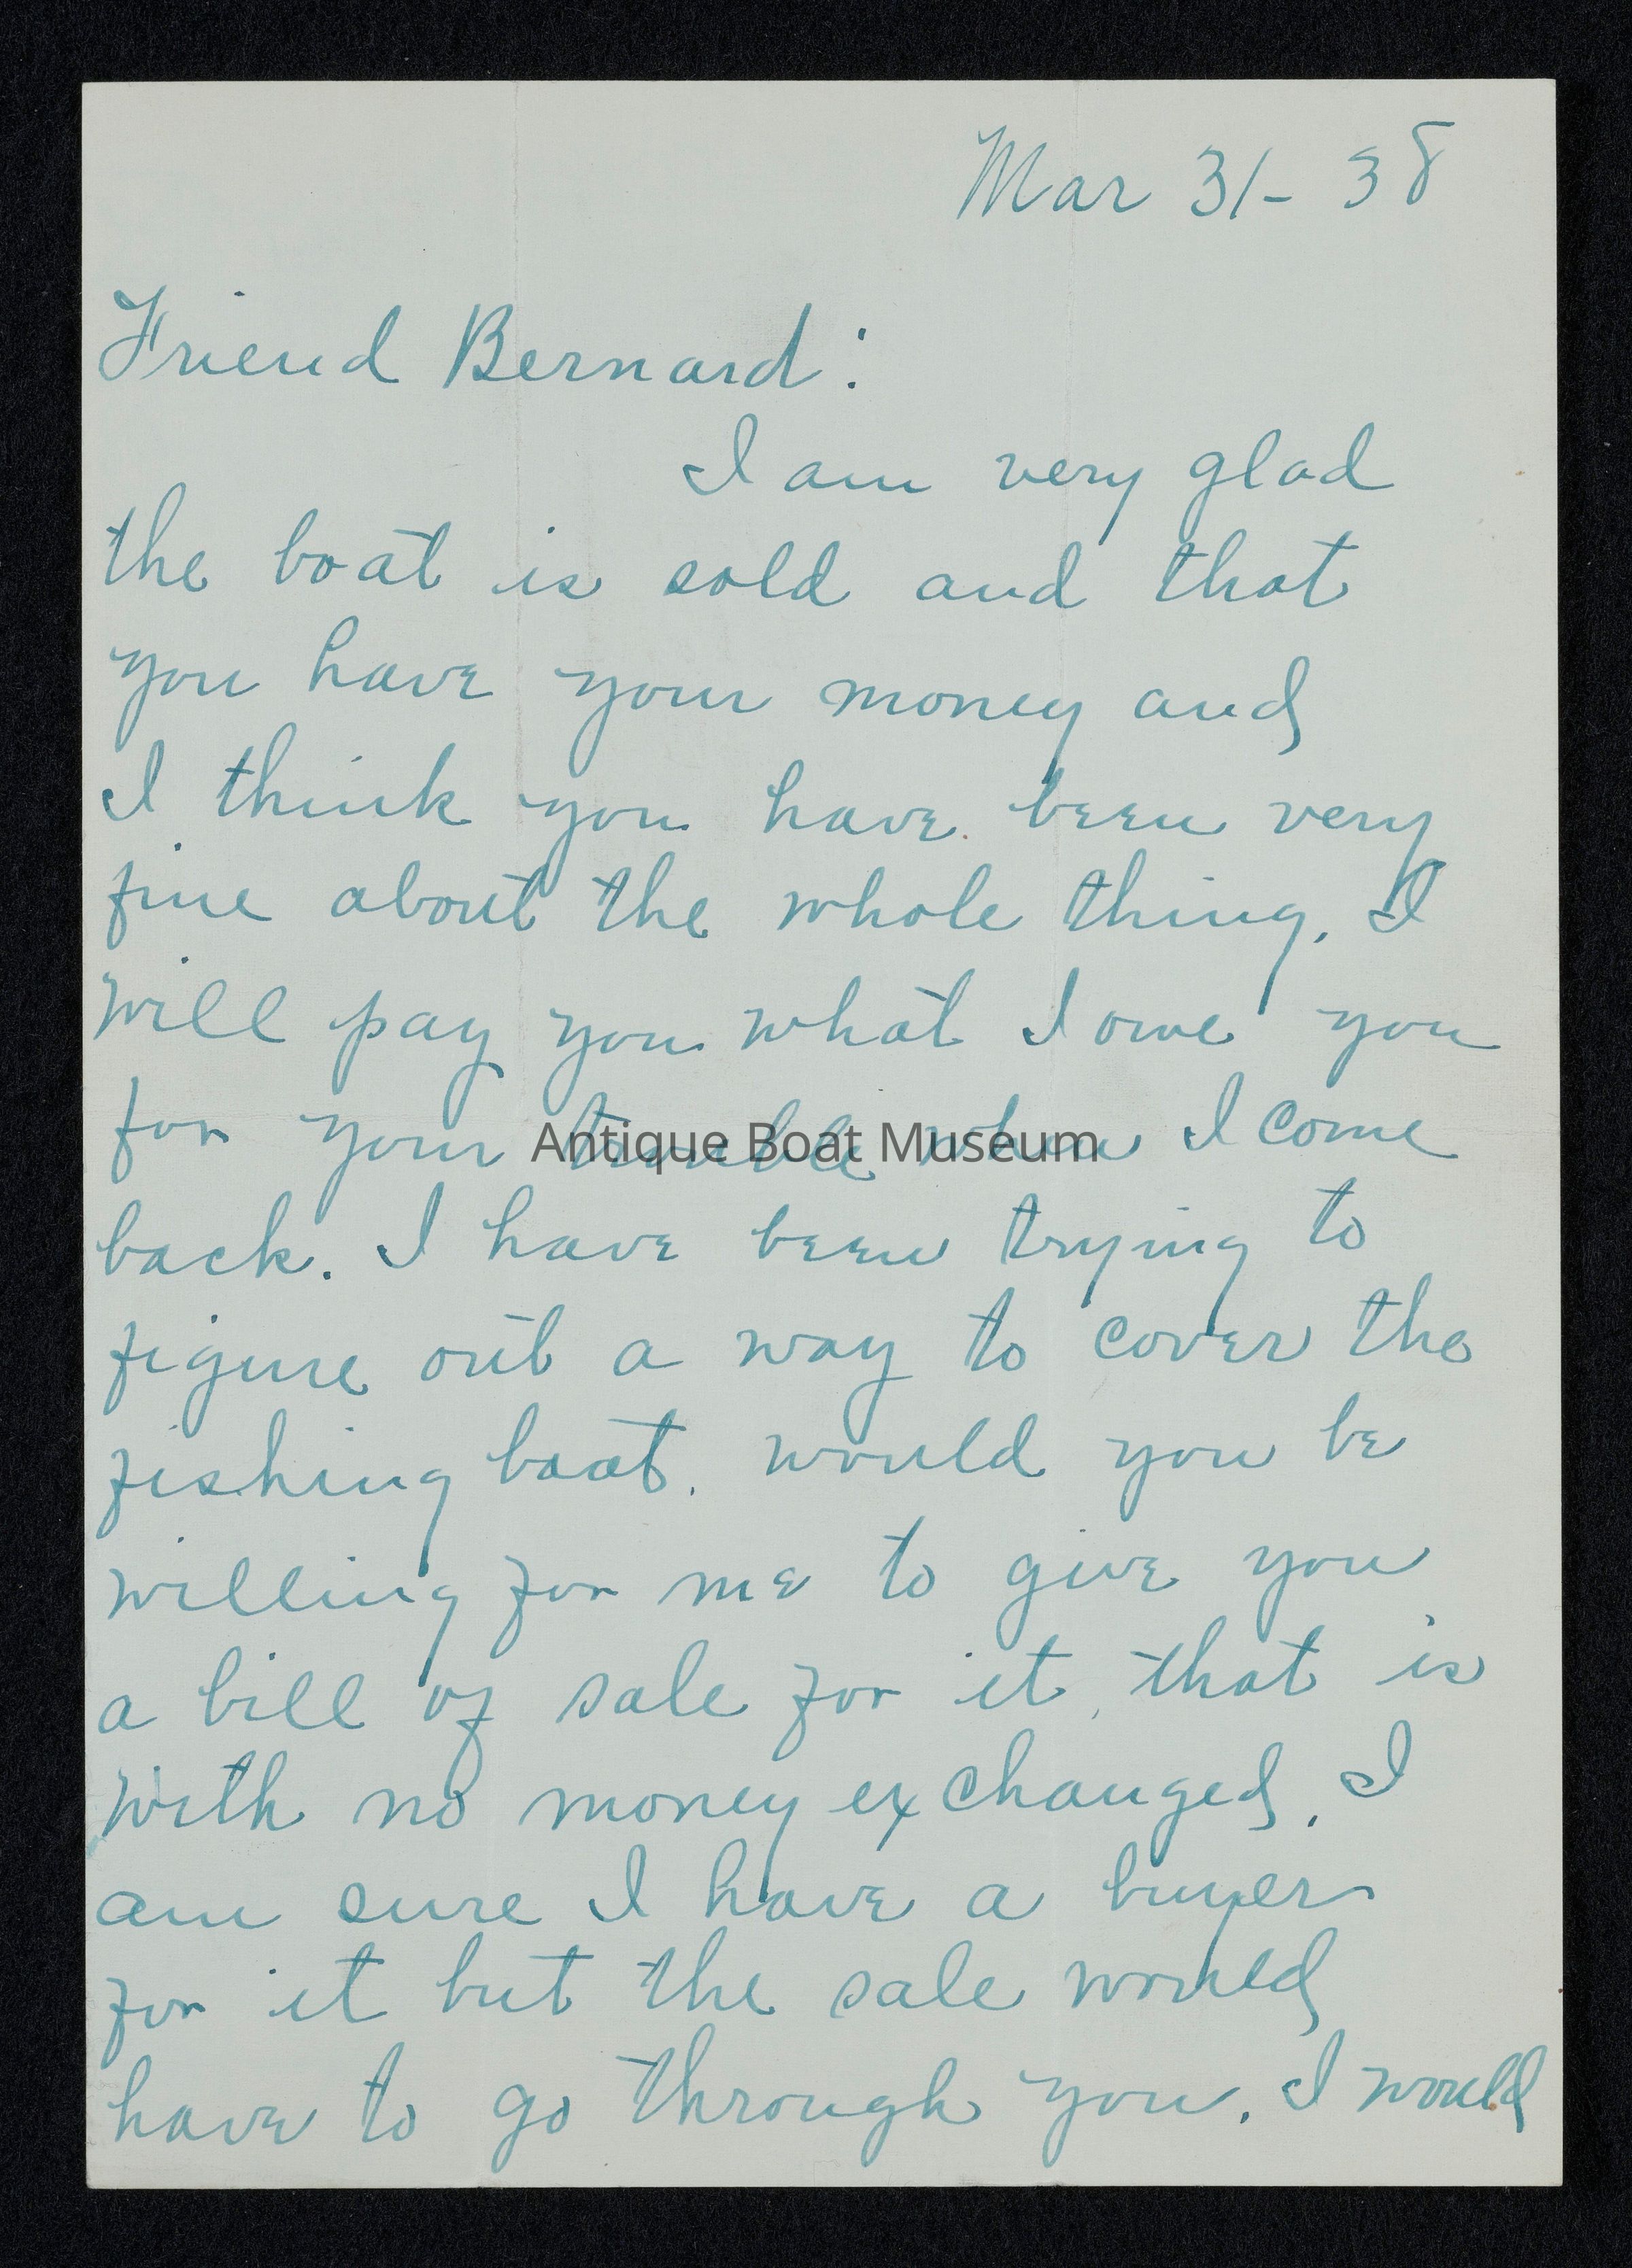 Mar 31- 38
Friend Bernard:
I am very glad
the boat is sold and that
you have your money and
I think you have been very
fine about the whole thing. I
will pay you what I owe you
for your trouble when I come
Antique Boat Museum
back. I have been trying to
figure out a way to cover the
fishing boat. would you be
willing for me to give you
a bill of sale for it, that is
with no money exchanged. I
am sure I have a buyer
for it but the sale would
have to go through you. I would